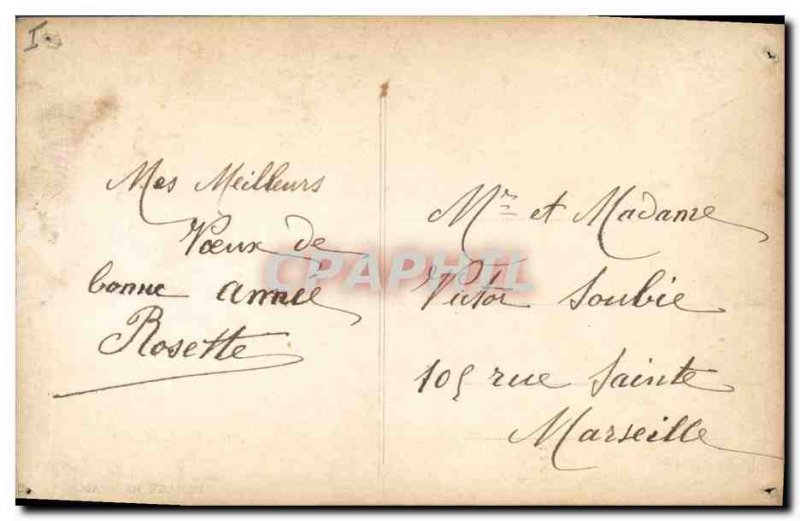 I
Mes Meilleurs
Vœux de
bonne année
Rosette
Mr et Madame
Victor Soubie
105 rue Sainte
Marseille
CPAPHIL